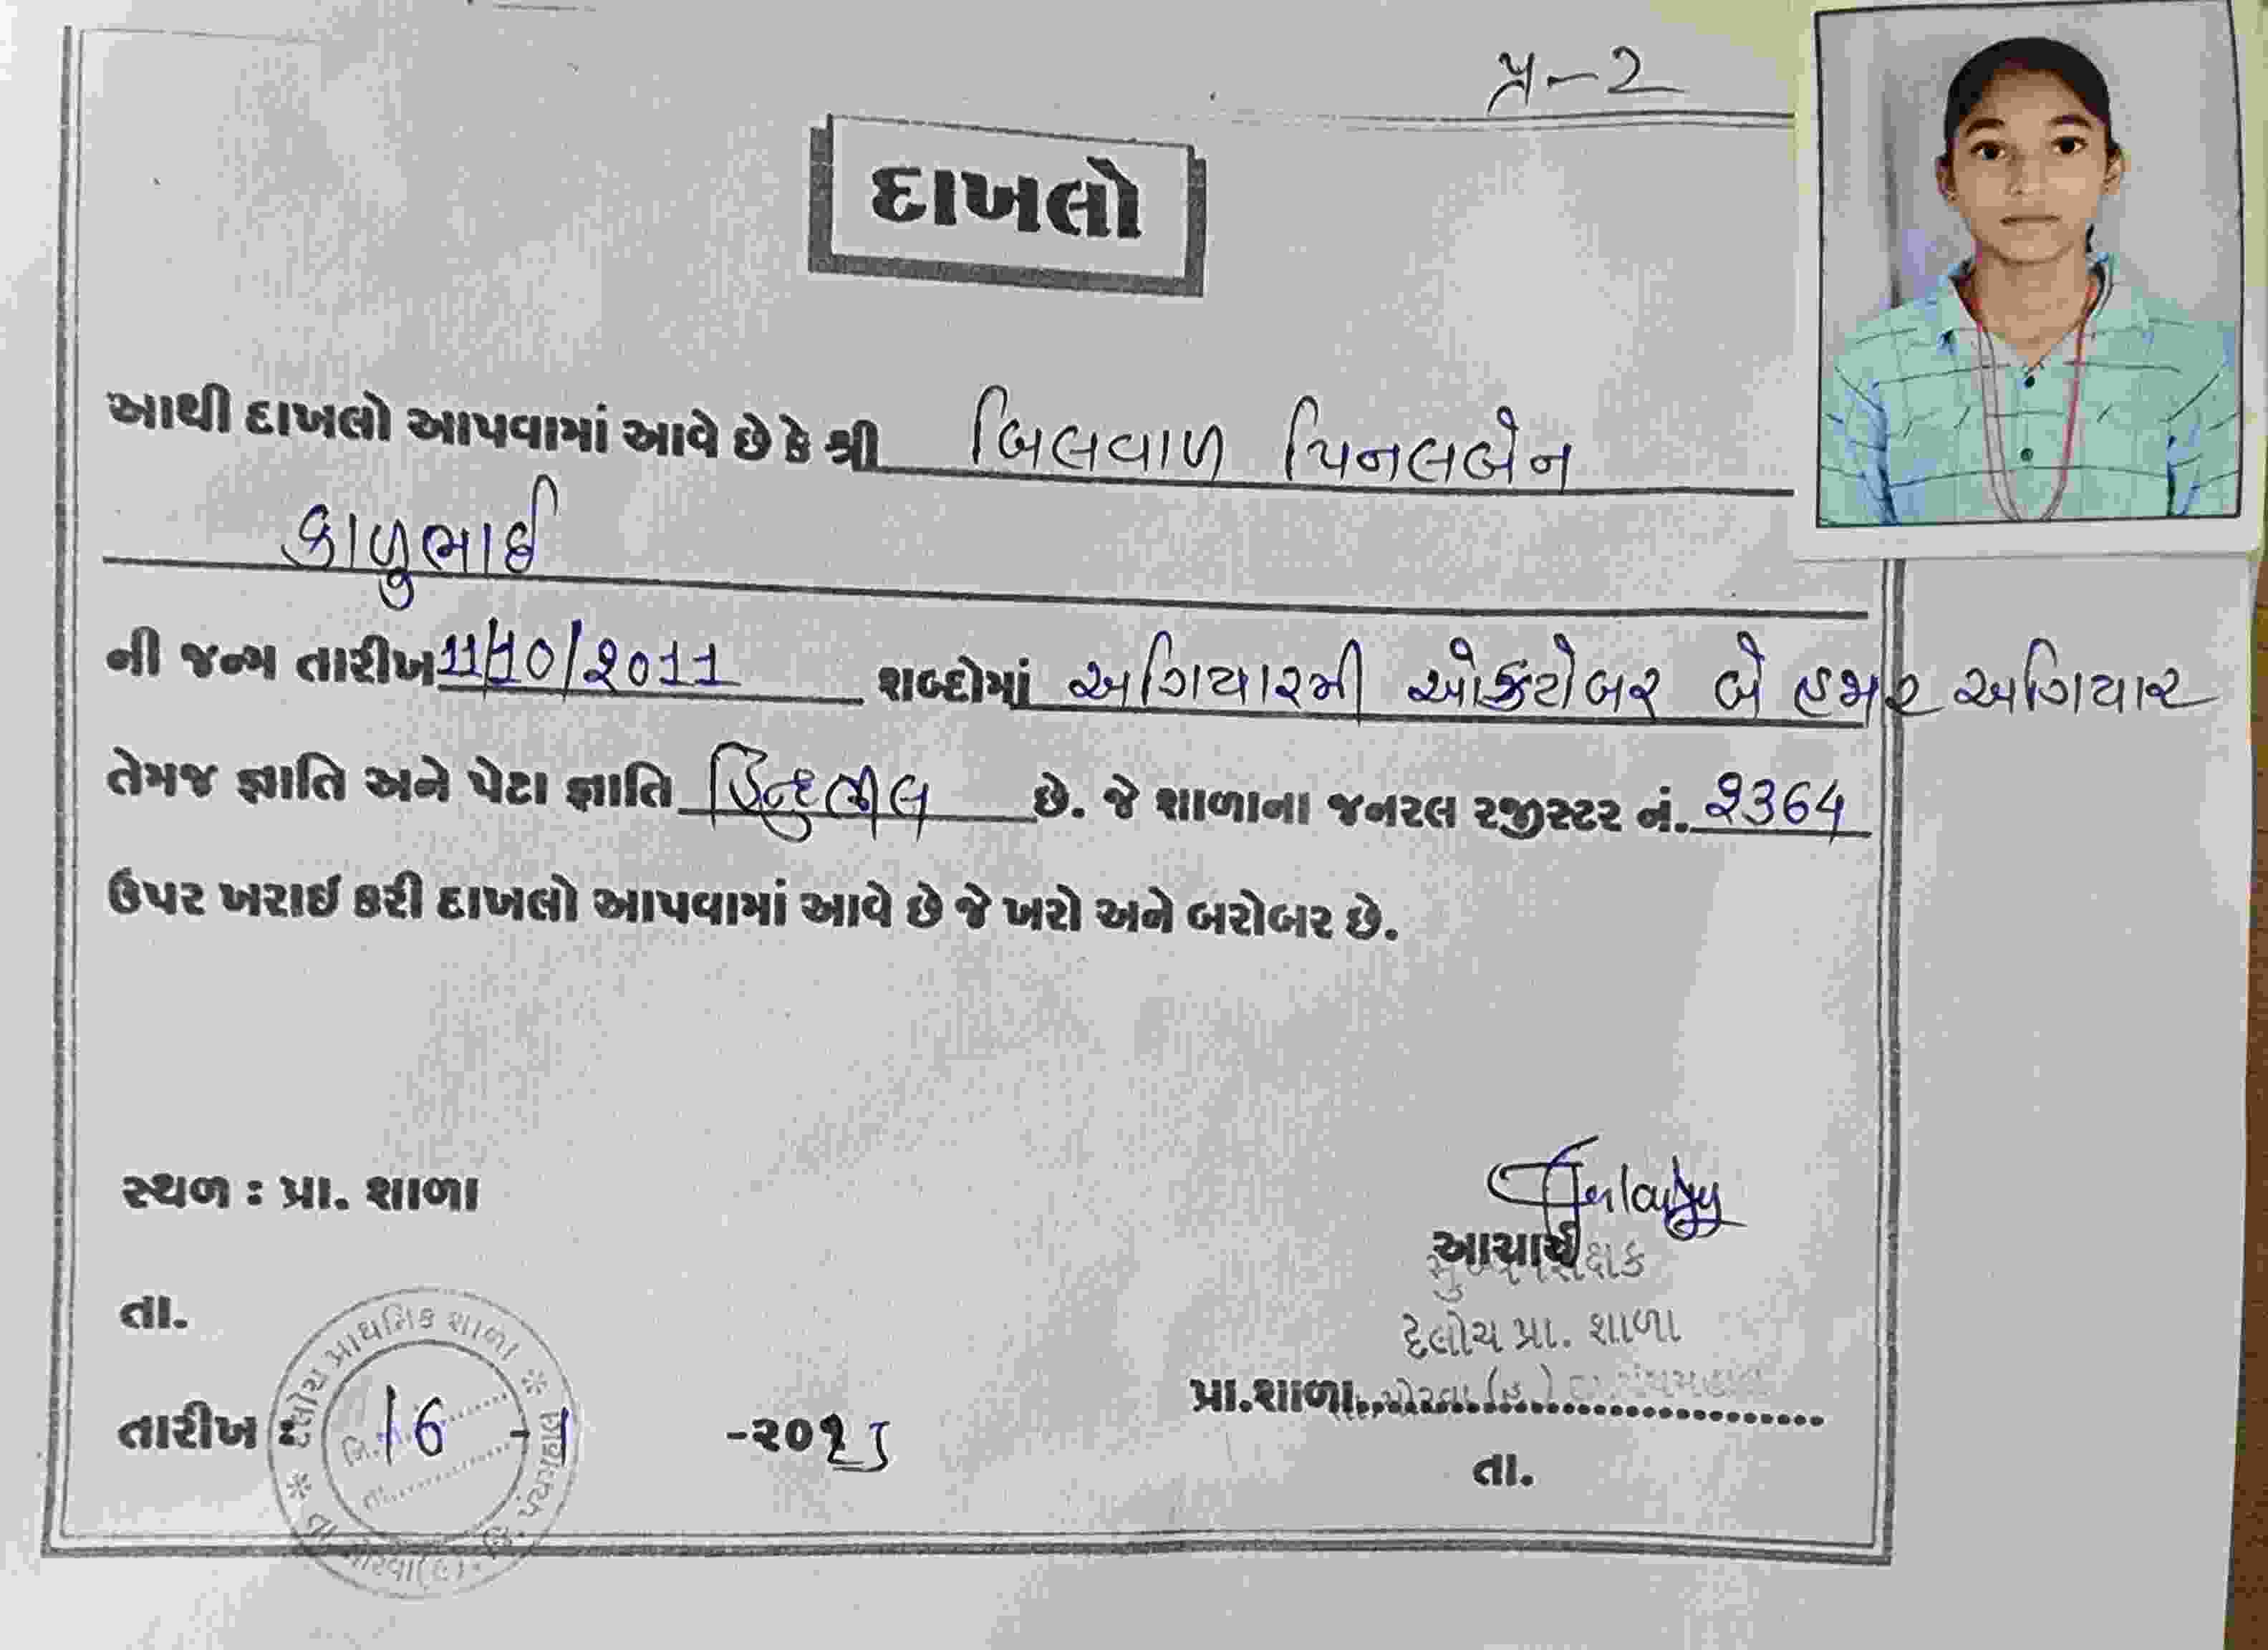 પ્ર-2
દાખલો
આથી દાખલો આપવામાં આવે છે કે શ્રી બિલવાળ પિનલબેન
કાળુભાઈ
ની જન્મ તારીખ 11/10/2011 શબ્દોમાં અગિયારમી ઓક્ટોબર બે હજાર અગિયાર
તેમજ જ્ઞાતિ અને પેટા જ્ઞાતિ હિન્દુ ભીલ છે. જે શાળાના જનરલ રજીસ્ટર નં. 2364
ઉપર ખરાઇ કરી દાખલો આપવામાં આવે છે જે ખરો અને બરોબર છે.
સ્થળ : પ્રા. શાળા
આચાર્ય
તા.
દેલોચ પ્રા. શાળા
પ્રા.શાળા
તારીખ : 16 - 1 -૨૦૨5
તા.
દેલોચ પ્રાથમિક શાળા